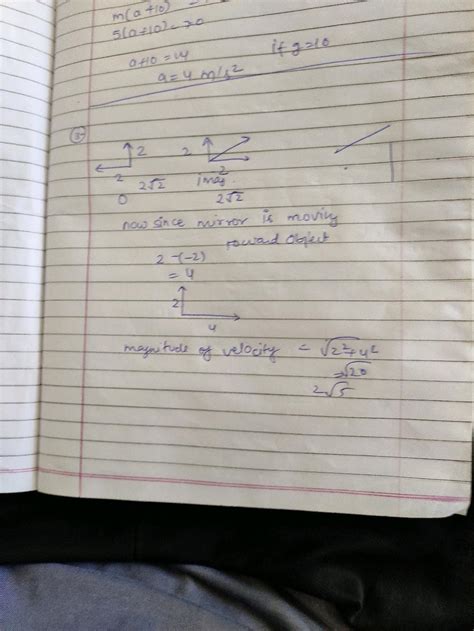 m(a+10)
5(a+10) = 70
a+10 = 14
if g=10
a = 4 m/s²
5
2
2
2
2
O
2√2
imag
2√2
now since mirror is moving
toward object
2 -(-2)
= 4
2
4
magnitude of velocity = √2²+4²
=√20
2√5